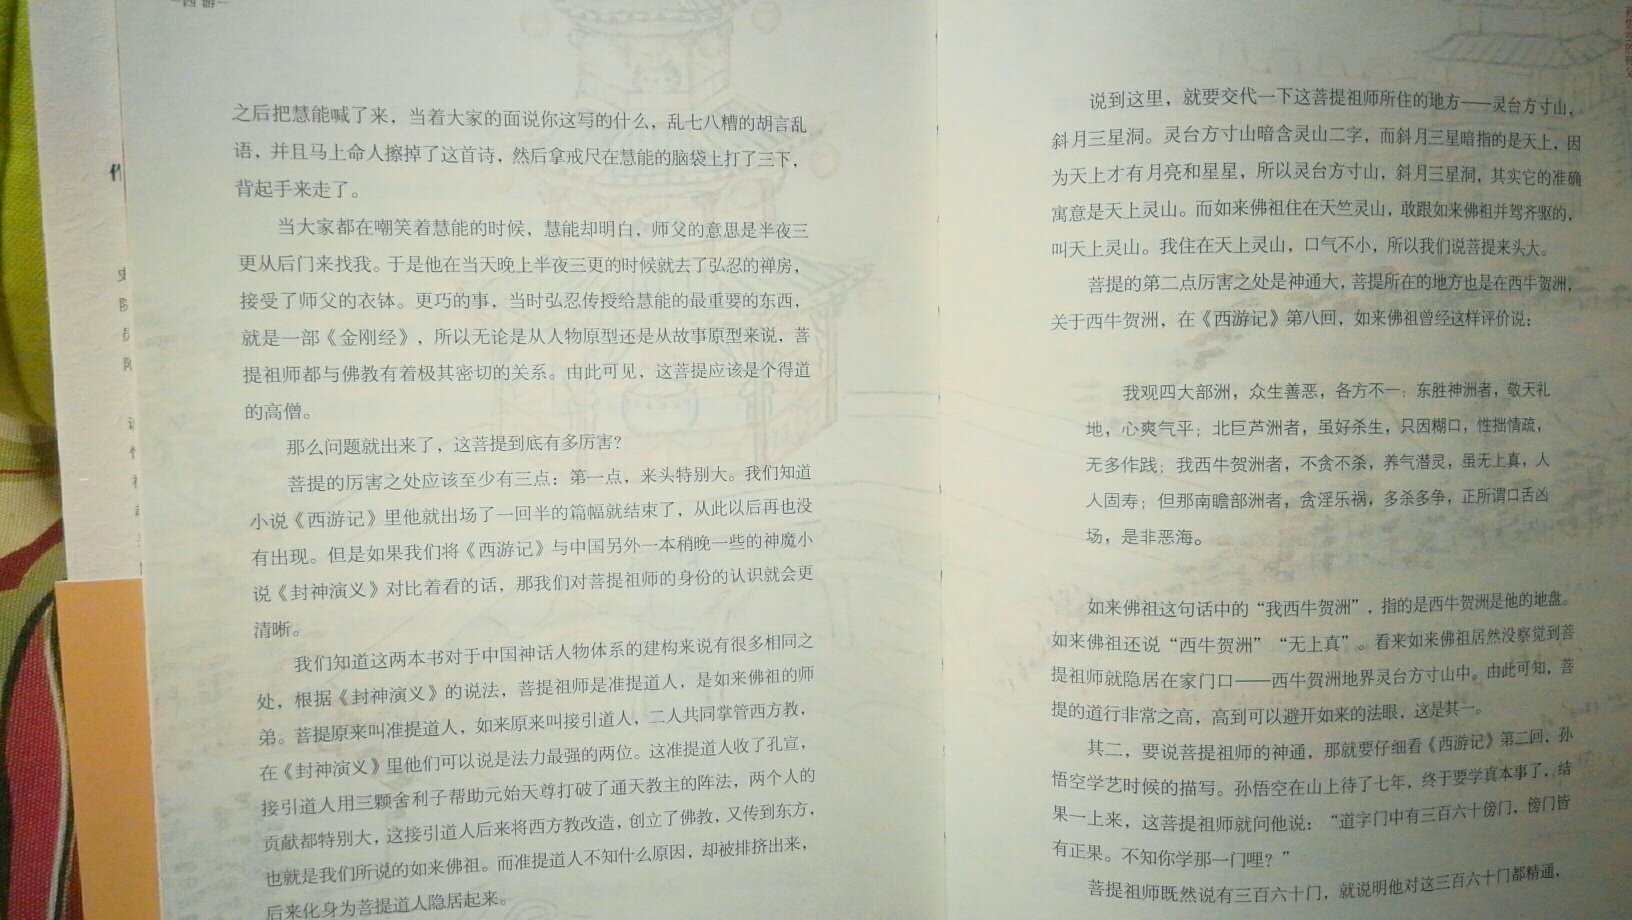 之后把慧能喊了来，当着大家的面说你这写的什么，乱七八糟的胡言乱
语，并且马上命人擦掉了这首诗，然后拿戒尺在慧能的脑袋上打了三下，
背起手来走了。
当大家都在嘲笑着慧能的时候，慧能却明白，师父的意思是半夜三
更从后门来找我。于是他在当天晚上半夜三更的时候就去了弘忍的禅房，
接受了师父的衣钵。更巧的事，当时弘忍传授给慧能的最重要的东西，
就是一部《金刚经》，所以无论是从人物原型还是从故事原型来说，菩
提祖师都与佛教有着极其密切的关系。由此可见，这菩提应该是个得道
的高僧。
那么问题就出来了，这菩提到底有多厉害？
菩提的厉害之处应该至少有三点：第一点，来头特别大。我们知道
小说《西游记》里他就出场了一回半的篇幅就结束了，从此以后再也没
有出现。但是如果我们将《西游记》与中国另外一本稍晚一些的神魔小
说《封神演义》对比着看的话，那我们对菩提祖师的身份的认识就会更
清晰。
我们知道这两本书对于中国神话人物体系的建构来说有很多相同之
处，根据《封神演义》的说法，菩提祖师是准提道人，是如来佛祖的师
弟。菩提原来叫准提道人，如来原来叫接引道人，二人共同掌管西方教，
在《封神演义》里他们可以说是法力最强的两位。这准提道人收了孔宣，
接引道人用三颗舍利子帮助元始天尊打破了通天教主的阵法，两个人的
贡献都特别大，这接引道人后来将西方教改造，创立了佛教，又传到东方，
也就是我们所说的如来佛祖。而准提道人不知什么原因，却被排挤出来，
后来化身为菩提道人隐居起来。
说到这里，就要交代一下这菩提祖师所住的地方——灵台方寸山，
斜月三星洞。灵台方寸山暗含灵山二字，而斜月三星暗指的是天上，因
为天上才有月亮和星星，所以灵台方寸山，斜月三星洞，其实它的准确
寓意是天上灵山。而如来佛祖住在天竺灵山，敢跟如来佛祖并驾齐驱的，
叫天上灵山。我住在天上灵山，口气不小，所以我们说菩提来头大。
菩提的第二点厉害之处是神通大，菩提所在的地方也是在西牛贺洲，
关于西牛贺洲，在《西游记》第八回，如来佛祖曾经这样评价说：
我观四大部洲，众生善恶，各方不一：东胜神洲者，敬天礼
地，心爽气平；北巨芦洲者，虽好杀生，只因糊口，性拙情疏，
无多作践；我西牛贺洲者，不贪不杀，养气潜灵，虽无上真，人
人固寿；但那南瞻部洲者，贪淫乐祸，多杀多争，正所谓口舌凶
场，是非恶海。
如来佛祖这句话中的“我西牛贺洲”，指的是西牛贺洲是他的地盘。
如来佛祖还说“西牛贺洲”“无上真”。看来如来佛祖居然没察觉到菩
提祖师就隐居在家门口——西牛贺洲地界灵台方寸山中。由此可知，菩
提的道行非常之高，高到可以避开如来的法眼，这是其一。
其二，要说菩提祖师的神通，那就要仔细看《西游记》第二回，孙
悟空学艺时候的描写。孙悟空在山上待了七年，终于要学真本事了，结
果一上来，这菩提祖师就问他说：“道字门中有三百六十傍门，傍门皆
有正果。不知你学那一门哩？”
菩提祖师既然说有三百六十门，就说明他对这三百六十门都精通，